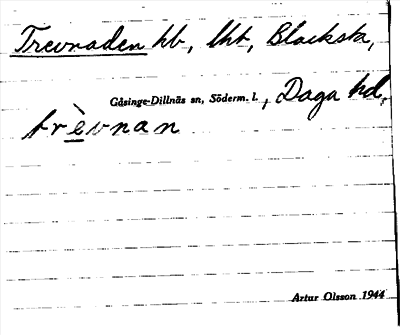 Trevnaden hb, lht, Blacksta,
Gåsinge-Dillnäs sn, Söderm. l., Daga hd.
trèvnan
Artur Olsson 1944